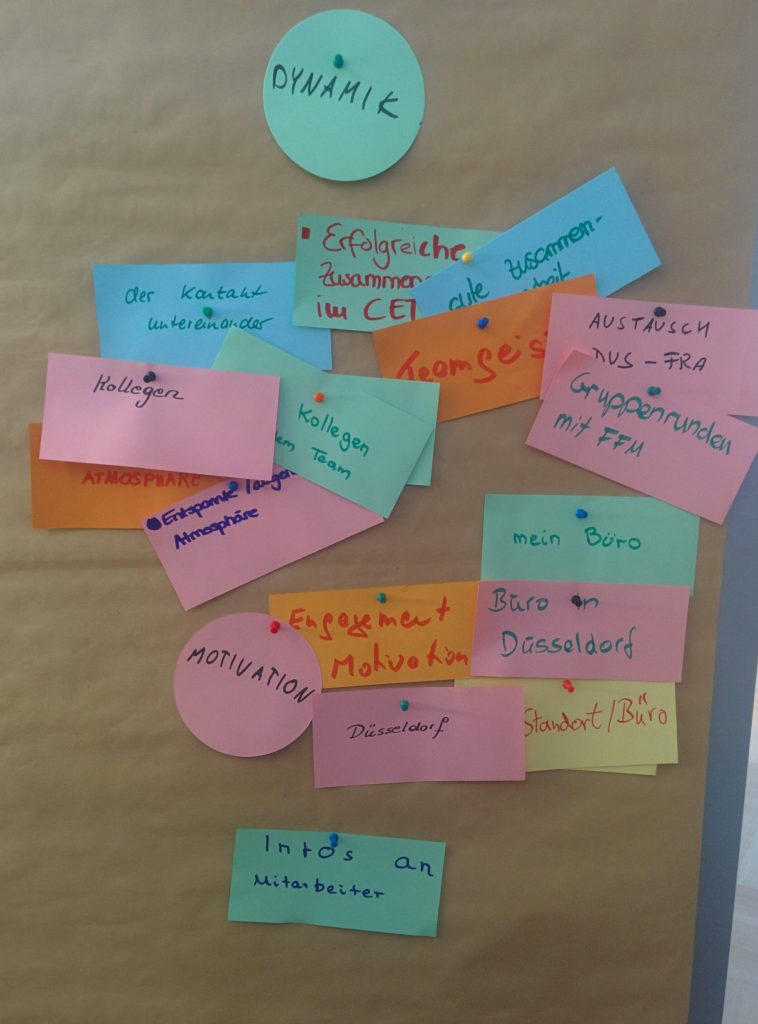 DYNAMIK
Erfolgreiche
Zusammen
im CET
gute Zusammen-
der Kontakt
untereinander
Teamgeis
AUSTAUSCH
DUS - FRA
Kollegen
Kollegen
Team
Gruppenrunden
mit FFM
ATMOSPHÄRE
Entspannte
Atmosphäre
mein Büro
Engagement
Motivation
Büro in
Düsseldorf
MOTIVATION
Düsseldorf
Standort/Büro
Infos an
Mitarbeiter